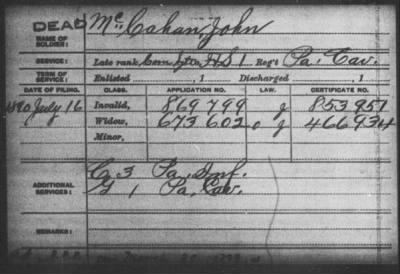 DEAD Mc Cahan John
NAME OF SOLDIER:
SERVICE: Late rank, Com Sgt H S 1 Reg't Pa. Cav.
TERM OF SERVICE: Enlisted , 1 Discharged , 1
DATE OF FILING. CLASS. APPLICATION NO. LAW. CERTIFICATE NO.
1890 July 16 Invalid, 869 799 J 853 951
Widow, 673 602 J 466 934
Minor,
ADDITIONAL SERVICES: C 3 Pa. Inf.
G 1 Pa. Cav.
REMARKS: